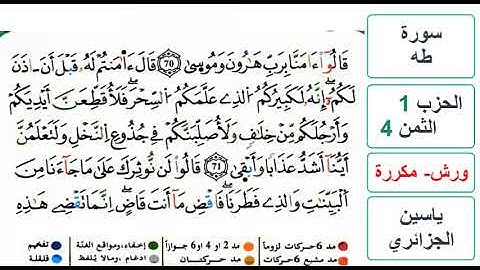 قَالُوٓاْ ءَامَنَّا بِرَبِّ هَٰرُونَ وَمُوسَىٰ 70 قَالَ ءَا۬مَنتُمْ لَهُۥ قَبْلَ أَنَ اٰذَنَ
لَكُمُۥٓ إِنَّهُۥ لَكَبِيرُكُمُ الذِے عَلَّمَكُمُ السِّحْرَ فَلَأُقَطِّعَنَّ أَيْدِيَكُمْ
وَأَرْجُلَكُم مِّنْ خِلَٰفٖ وَلَأُصَلِّبَنَّكُمْ فِے جُذُوعِ النَّخْلِ وَلَتَعْلَمُنَّ
أَيُّنَآ أَشَدُّ عَذَابٗا وَأَبْقَىٰ 71 قَالُواْ لَن نُّوثِرَكَ عَلَىٰ مَا جَآءَنَا مِنَ
اَلْبَيِّنَٰتِ وَالذِے فَطَرَنَا فَاقْضِ مَآ أَنتَ قَاضٍ اِنَّمَا تَقْضِے هَٰذِهِ
مد 6 حركات لزوماً مد 2 او 4 او 6 جوازاً إخفاء، ومواقع الغنة تفخيم
مد مشبع 6 حركات مد حركتان ادغام ، ومالا يلفظ قلقلة
سورة
طه
الحزب 1
الثمن 4
ورش- مكررة
ياسين
الجزائري